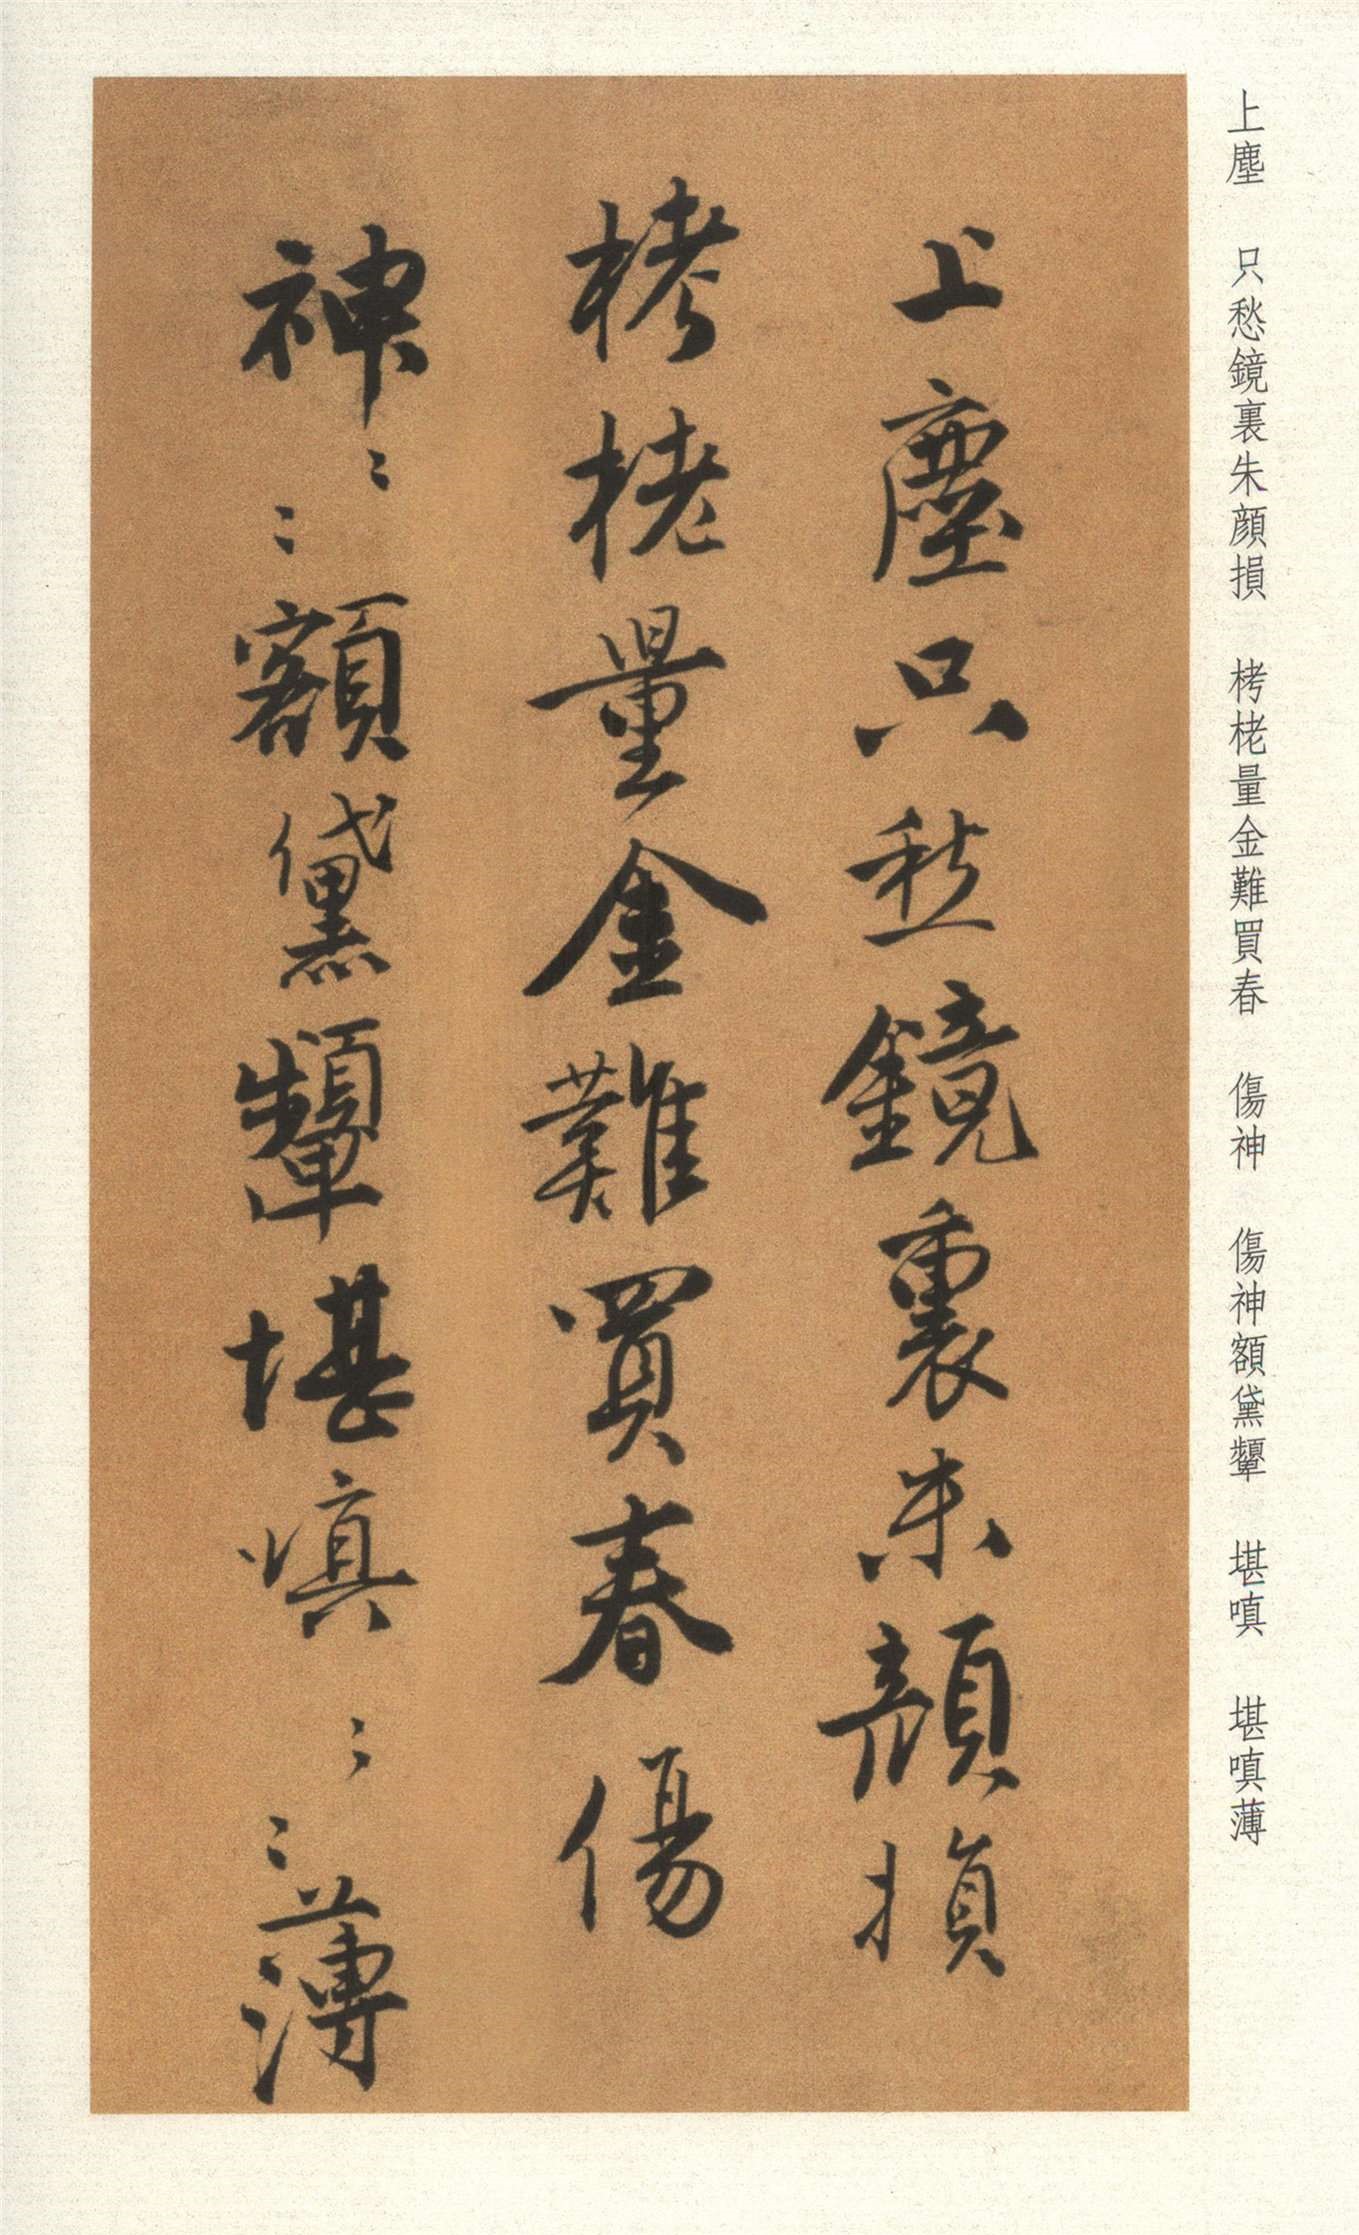 上塵　只愁鏡裏朱顔損　栲栳量金難買春　傷神　傷神額黛顰　堪嗔　堪嗔薄
上塵只愁鏡裏朱顔損
栲栳量金難買春傷
神〻〻額黛顰堪嗔〻〻薄